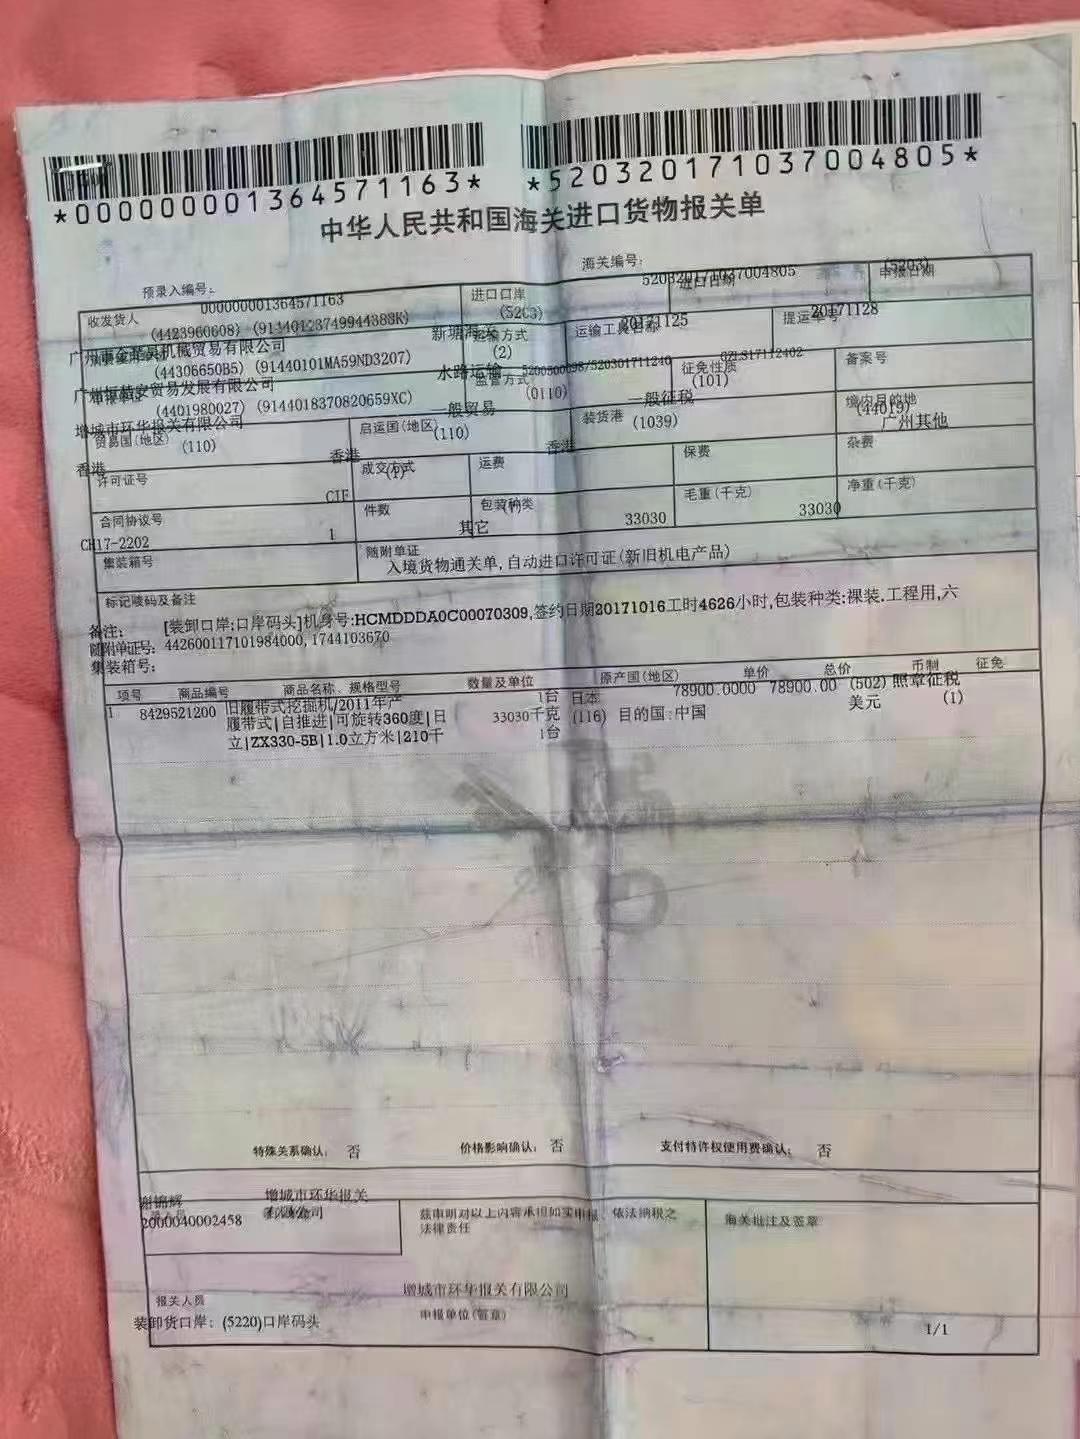 *000000001364571163*
*520320171037004805*
中华人民共和国海关进口货物报关单
预录入编号: 000000001364571163
海关编号: 520320171037004805 (5203)
收发货人 (4423960608)
进口口岸
进口日期
申报日期
新塘海关
20171125
20171128
机械贸易有限公司
(44306650B5) (91440101MA59ND3207)
运输方式 (2)
运输工具名称
提运单号
贸易发展有限公司
(4401980027) (9144018370820659XC)
水路运输
监管方式 (0110)
征免性质 (101)
备案号
增城市环华报关有限公司
贸易国(地区) (110)
一般贸易
启运国(地区) (110)
一般征税
装货港 (1039)
境内目的地 (44019)
广州其他
香港
香港
香港
许可证号
成交方式 (1)
运费
保费
杂费
CIF
合同协议号
件数
包装种类
毛重(千克)
净重(千克)
CH17-2202
1
其它
33030
33030
集装箱号
随附单证
入境货物通关单,自动进口许可证(新旧机电产品)
标记唛码及备注
备注: [装卸口岸:口岸码头]机身号:HCMDDDA0C00070309,签约日期20171016工时4626小时,包装种类:裸装.工程用,六
随附单证号: 442600117101984000, 1744103670
集装箱号:
项号 商品编号 商品名称、规格型号 数量及单位 原产国(地区) 单价 总价 币制 征免
1 8429521200 旧履带式挖掘机/2011年产 1台 日本 78900.0000 78900.00 (502) 照章征税
履带式|自推进|可旋转360度|日 33030千克 (116) 目的国:中国 美元 (1)
立|ZX330-5B|1.0立方米|210千 1台
特殊关系确认: 否 价格影响确认: 否 支付特许权使用费确认: 否
谢锦辉 增城市环华报关
有限公司
2000040002458
兹申明对以上内容承担如实申报、依法纳税之
法律责任
海关批注及签章
增城市环华报关有限公司
报关人员
申报单位(签章)
装卸货口岸: (5220)口岸码头
1/1